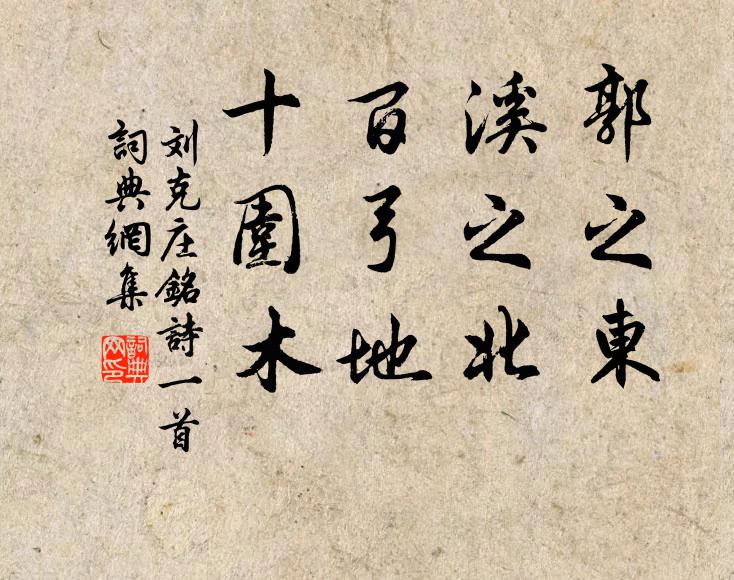 郭之東
溪之北
百弓地
十圍木
刘克庄銘詩一首
詞典網集
詞典网印